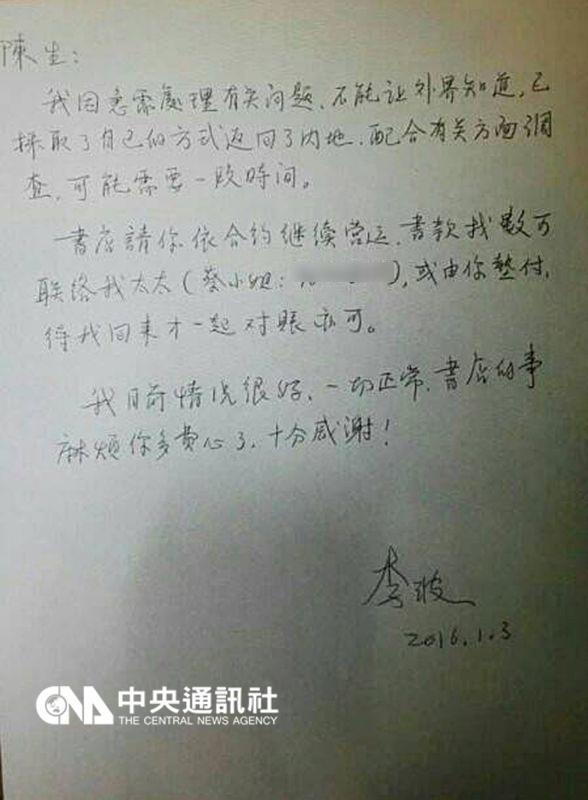 陳生：
我因急需處理有关问题，不能让外界知道，已
採取了自己的方式返回了内地，配合有关方面調
查，可能需要一段時间。
書店請你依合約继续营运，書款找數可
联络我太太（蔡小姐：），或由你墊付，
待我回来才一起对賬亦可。
我目前情况很好，一切正常，書店的事
麻烦你多費心了，十分感谢！
李波
2016.1.3
CNA 中央通訊社
THE CENTRAL NEWS AGENCY